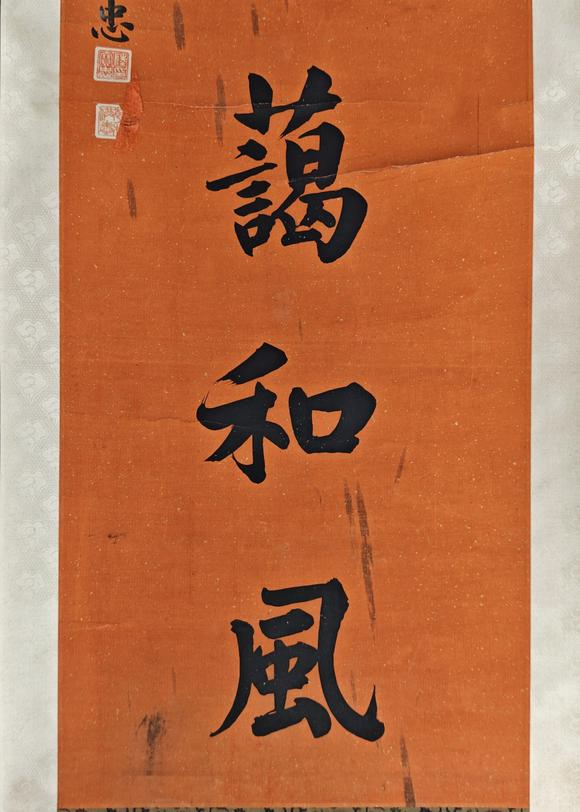 藹和風
忠